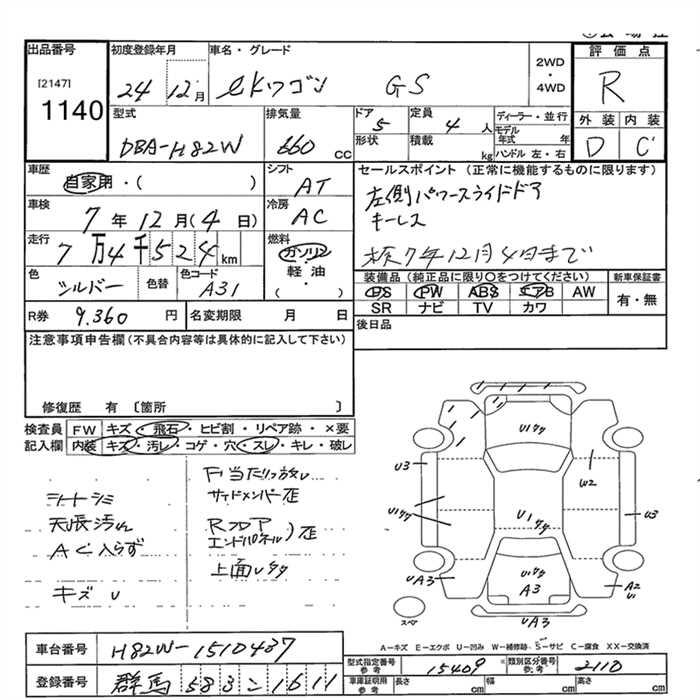 出品番号 初度登録年月 車名・グレード 2WD・4WD 評価点
[2147] 1140 24 12月 eKワゴン GS R
型式 排気量 ドア 定員 ディーラー・並行 外装 内装
DBA-H82W 660cc 5 4人 モデル年式 年 D C
形状 積載 kg ハンドル 左・右
車歴 自家用・( ) シフト AT セールスポイント (正常に機能するものに限ります)
車検 7年12月(4日) 冷房 AC 左側パワースライドドア
キーレス
走行 7万4千524km 燃料 ガソリン・軽油・( ) 検7年12月4日まで
色 シルバー 色替 色コード A31 装備品(純正品に限り〇をつけてください) 新車保証書
PS PW ABS エアB AW 有・無
SR ナビ TV カワ
R券 9,360円 名変期限 月 日 後日品
注意事項申告欄(不具合内容等は具体的に記入して下さい)
修復歴 有〔箇所 〕
検査員 FW キズ・飛石・ヒビ割・リペア跡・×要
記入欄 内装 キズ・汚レ・コゲ・穴・スレ・キレ・破レ
シートシミ
天張汚れ
AC入らず
キズ U
F当たり放し
サイドメンバー歪
Rフロア
エンドパネル)歪
上面Uタタ
U1タタ
U3 W2
U1タタ U1タタ U3
UA3 U1タタ A3 A2 U1
スペア UA3
A－キズ E－エクボ U－凹み W－補修跡 S－サビ C－腐食 XX－交換済
車台番号 H82W-1510437
型式指定番号 参考 15409 ※類別区分番号 参考 2110
登録番号 群馬 583 こ 1611
車庫証明用 参考 長さ cm 幅 cm 高さ cm